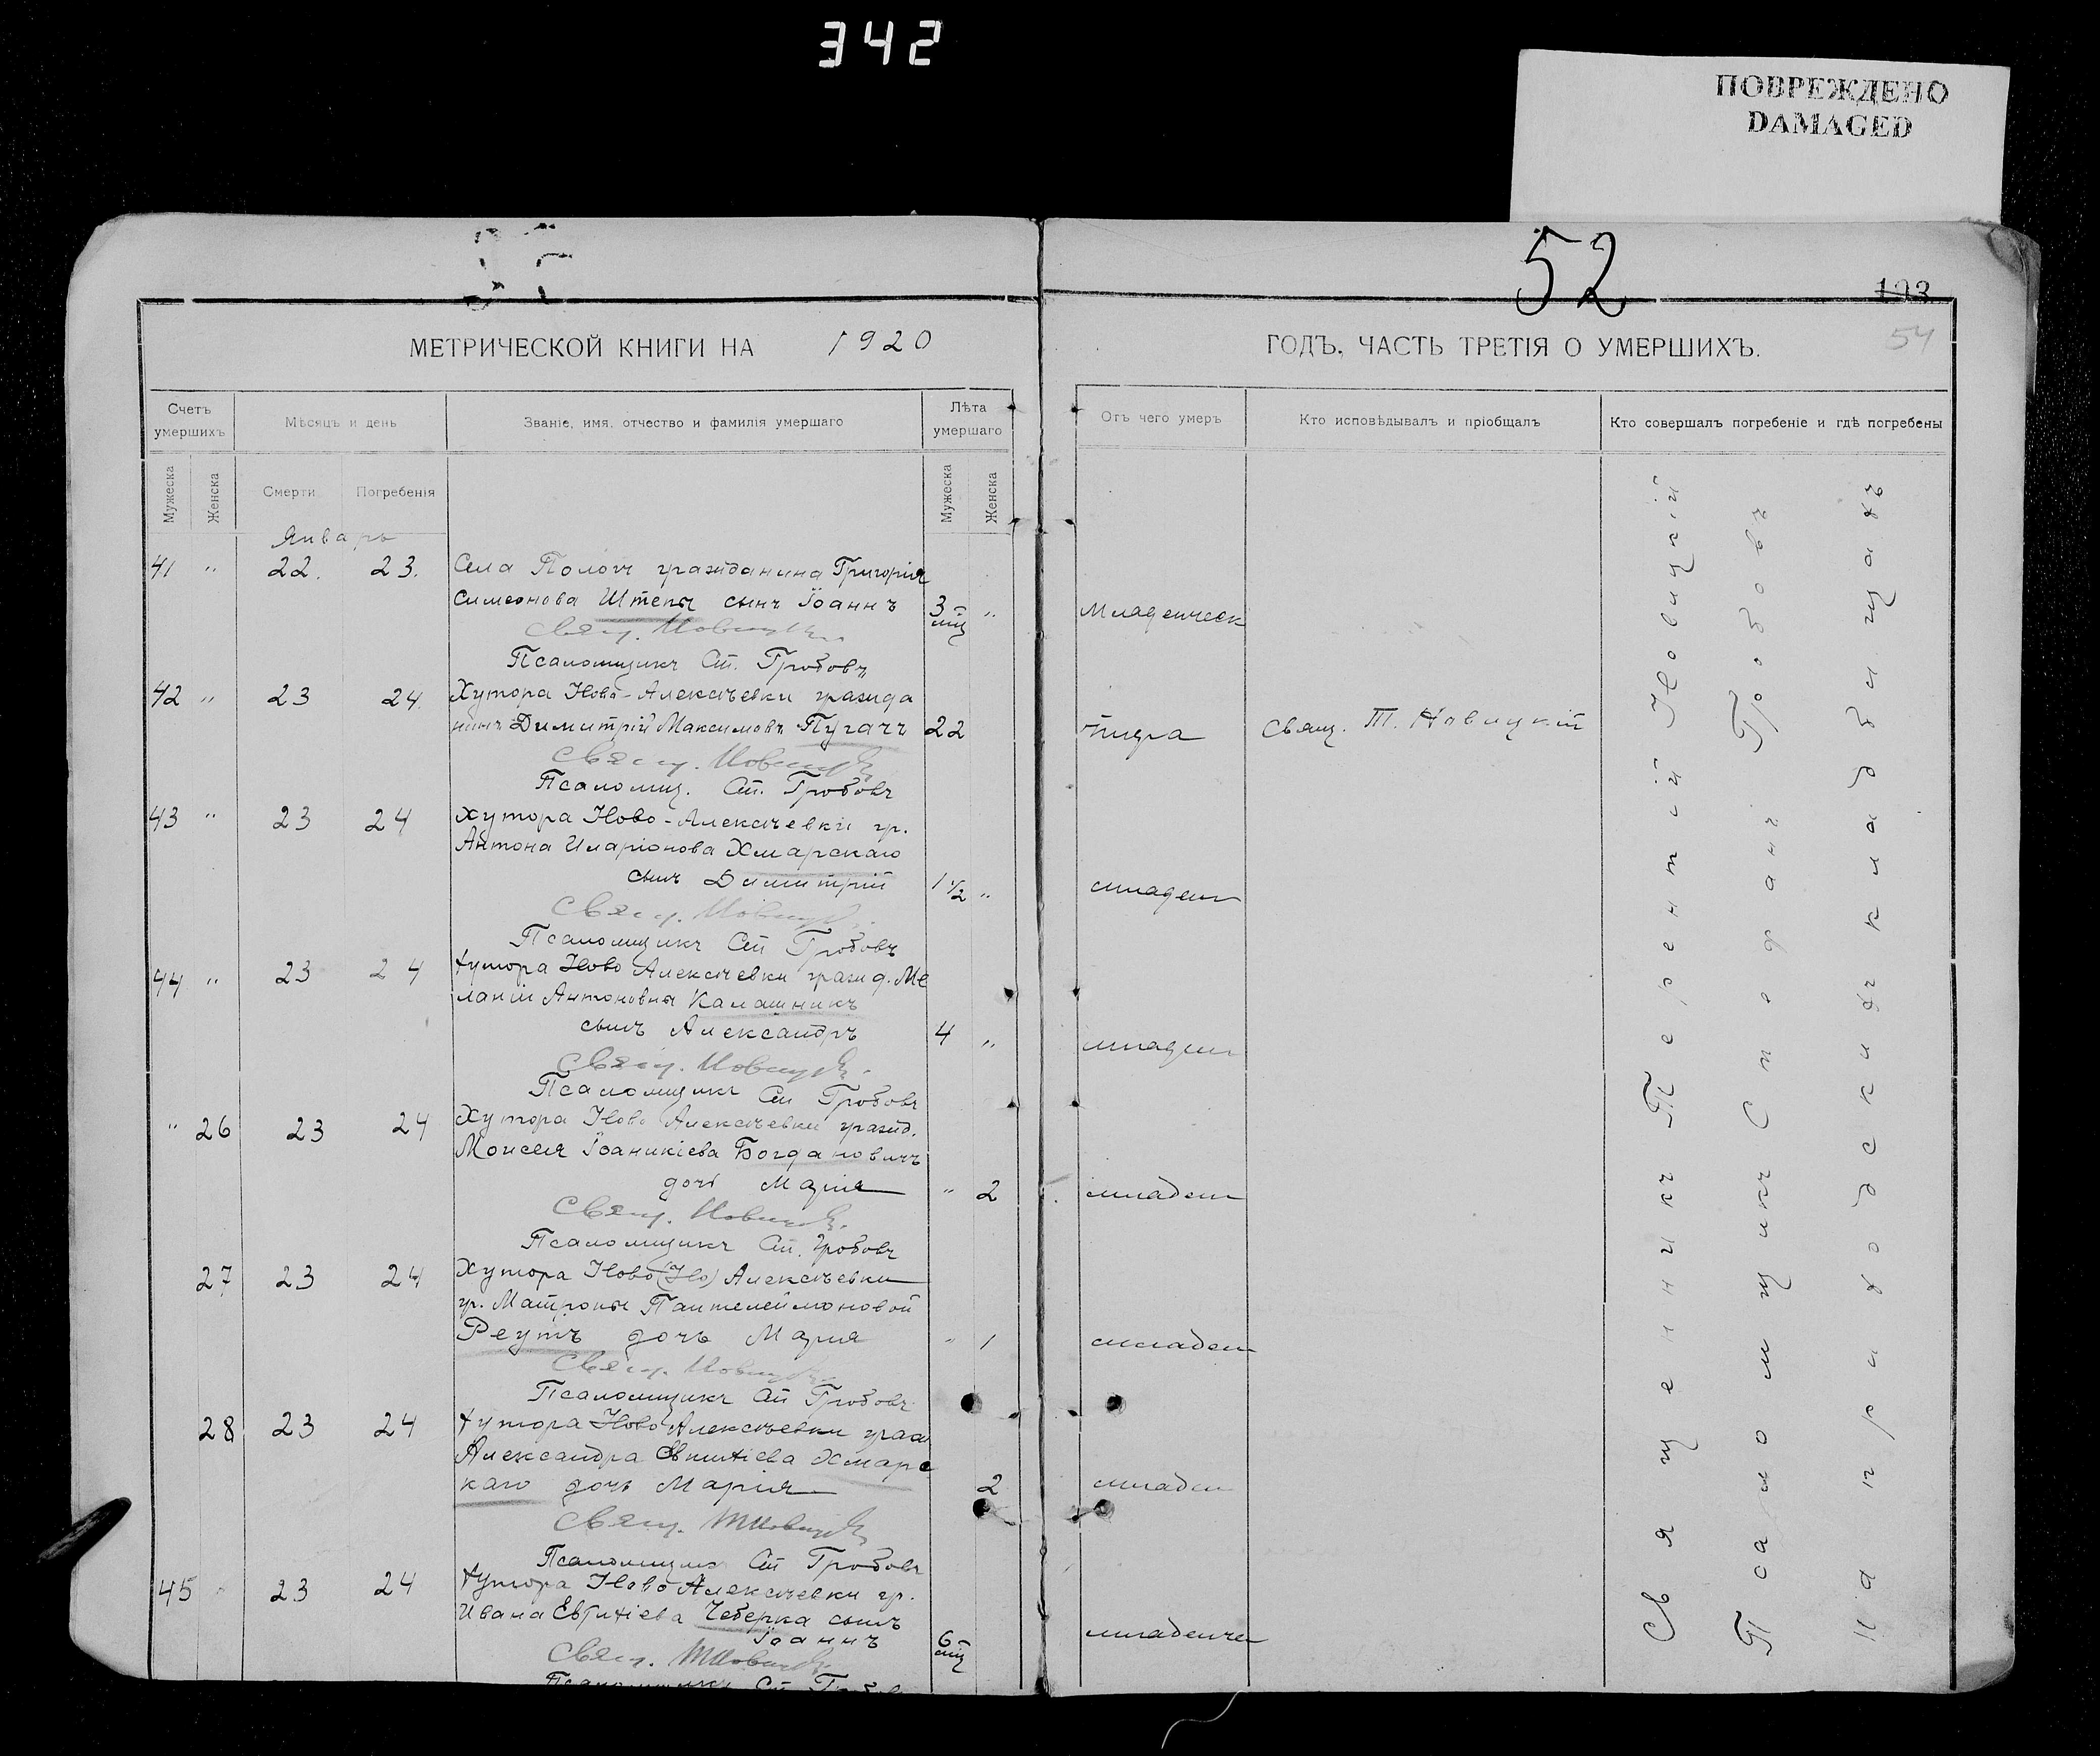 342
ПОВРЕЖДЕНО
DAMAGED
52
103
54
МЕТРИЧЕСКОЙ КНИГИ НА 1920
ГОДЪ, ЧАСТЬ ТРЕТІЯ О УМЕРШИХЪ.
Счетъ умершихъ
Мѣсяцъ и день
Званіе, имя, отчество и фамилія умершаго
Лѣта умершаго
Отъ чего умеръ
Кто исповѣдывалъ и пріобщалъ
Кто совершалъ погребеніе и гдѣ погребены
Мужеска
Женска
Смерти
Погребенія
Мужеска
Женска
Январь
41 " 22. 23. Села Пологъ гражданина Григорія
Симеонова Штепы сынъ Іоаннъ 3 мц " Младенческ
Свящ. Новицкій
Псаломщикъ Сп. Гробовъ
42 " 23 24. Хутора Ново-Алексѣевки гражда
нинъ Димитрій Максимовъ Пугачъ 22 тифа Свящ. Т. Новицкій
Свящ. Новицкій
Псаломщ. Сп. Гробовъ
43 " 23 24 Хутора Ново-Алексѣевки гр.
Антона Иларіонова Хмарскаго
сынъ Димитрій 1 1/2 " младен
Свящ. Новицкій
Псаломщикъ Сп Гробовъ
44 " 23 24 Хутора Ново Алексѣевки гражд. Ме
ланіи Антоновны Калашникъ
сынъ Александръ 4 " младен
Свящ. Новицкій
Псаломщикъ Сп Гробовъ
" 26 23 24 Хутора Ново Алексѣевки гражд.
Моисея Іоаникіева Богдановичъ
дочь Марія " 2 младен
Свящ. Новицкій
Псаломщикъ Сп. Гробовъ
27 23 24 Хутора Ново (Но) Алексѣевки
гр. Матроны Пантелеймоновой
Реутъ дочь Марія " 1 младен
Свящ. Новицкій
Псаломщикъ Сп Гробовъ
28 23 24 Хутора Ново Алексѣевки граж
Александра Хмарс
каго дочь Марія 2 младен
Свящ. Т Новицкій
Псаломщикъ Сп Гробовъ
45 23 24 Хутора Ново Алексѣевки гр.
Ивана Евтихіева Чеберка сынъ
Іоаннъ 6 мц младенче
Свящ. Т Новицкій
Псаломщикъ Сп Гробовъ
Священникъ Терентій Новицкій
Псаломщикъ Спофанъ Гробовъ
На приходскихъ кладбищахъ